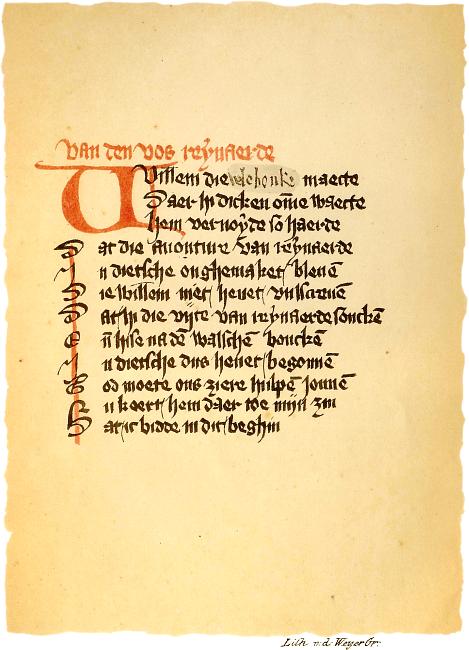 van den vos reynaerde
Willem die vele bouke maecte
Daer hi dicken om̄e waecte
Hem vernoyde so haerde
Dat die auonture van reynaerde
In dietsche onghemaket bleuē
Die willem niet heuet vulscreuē
Dat hi die vijte van reynaerde souckē
En̄ hise na dē walschē bouckē
In dietsche dus heuet begōnē
God moete ons ziere hulpē jonnē
Nu keert hem daer toe mijn zin
Dat ic bidde in dit beghin
Lith v. d. Weyer Gr.